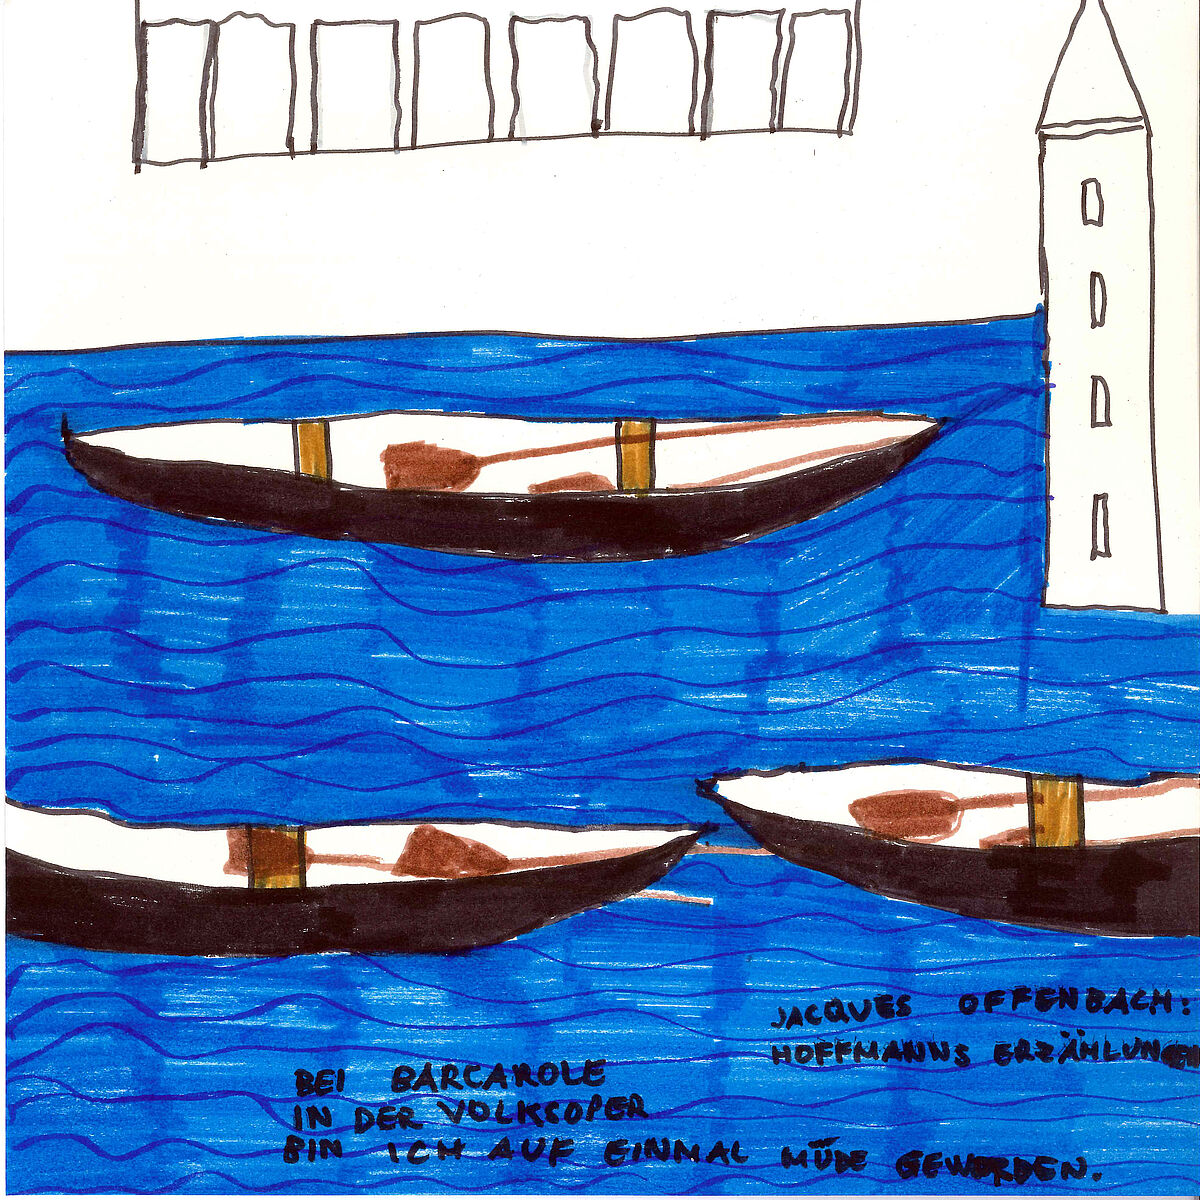 JACQUES OFFENBACH:
HOFFMANNS ERZÄHLUNGEN
BEI BARCAROLE
IN DER VOLKSOPER
BIN ICH AUF EINMAL MÜDE GEWORDEN.